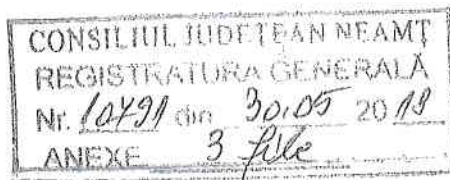 CONSILIUL JUDEŢEAN NEAMŢ
REGISTRATURA GENERALĂ
Nr. 10491 din 30.05 2018
ANEXE 3 file